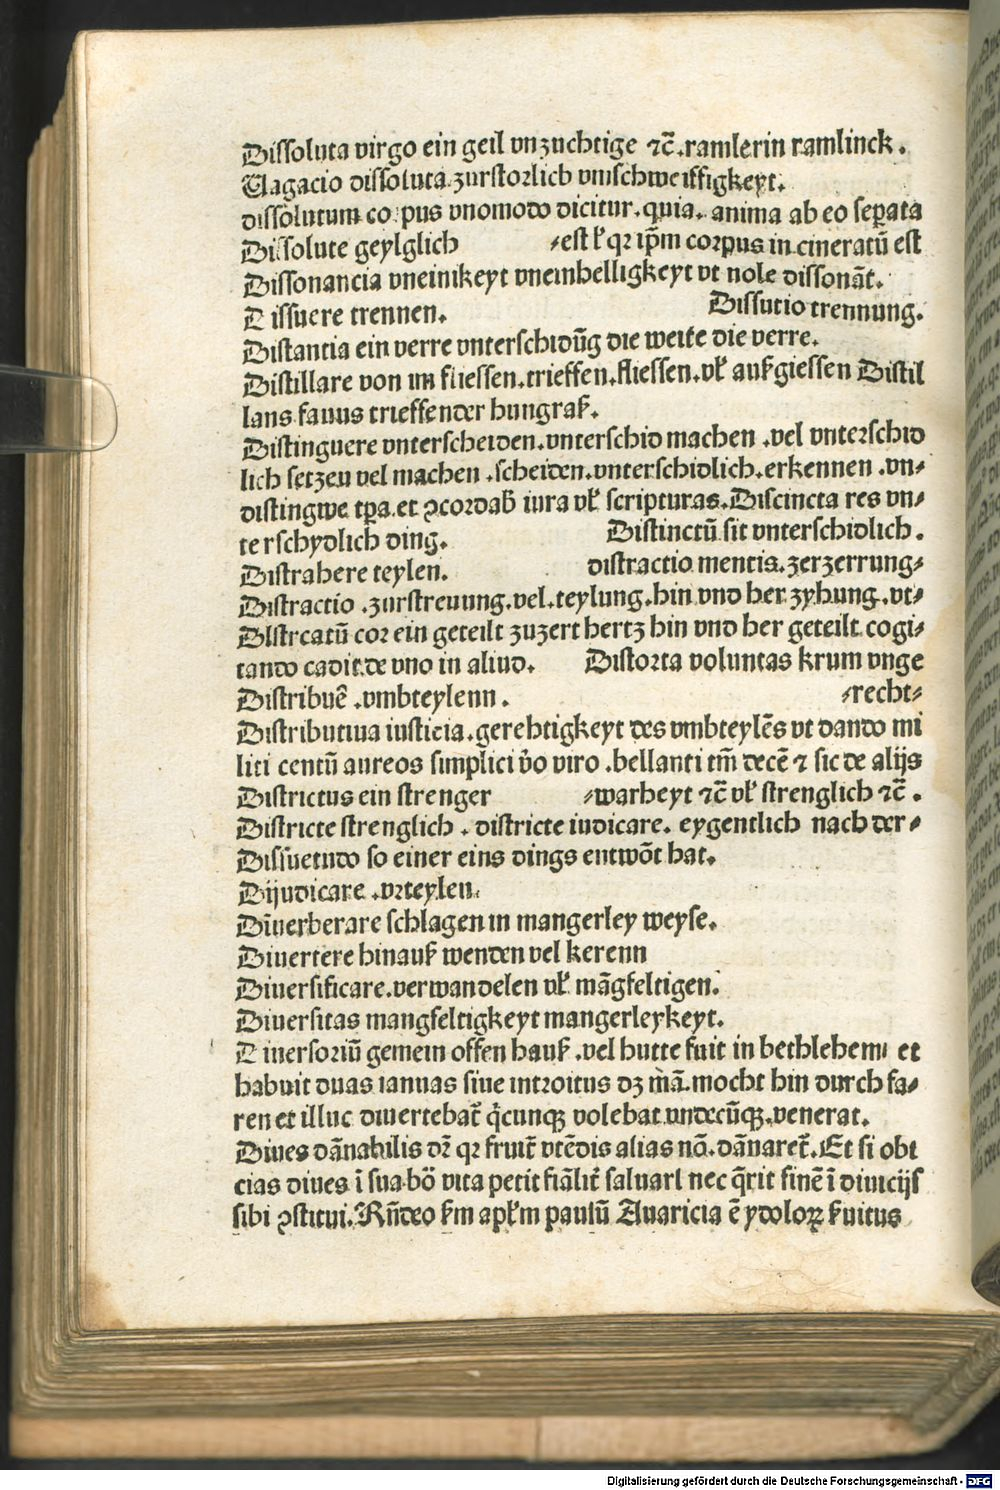 Dissoluta virgo ein geil vnzuchtige ⁊c̄.ramlerin ramlinck.
Uagacio dissoluta.zurstorlich vmschweiffigkeyt.
dissolutum co:pus vnomodo dicitur.quia. anima ab eo seꝑata
Dissolute geylglich ⸗est ł qꝛ ip̄m corpus in cineratū est
Dissonancia vneinikeyt vneinhelligkeyt vt nole dissonāt.
Dissuere trennen. Dissutio trennung.
Distantia ein verre vnterschidūg die weite die verre.
Distillare von im fliessen.trieffen.fliessen.vł aufgiessen Distil
lans fauus trieffender hungraß.
Distinguere vnterscheiden.vnterschid machen .vel vnterschid
lich setzen vel machen .scheiden.vnterschidlich.erkennen .vn⸗
distingwe tꝑa.et ꝯcordab̄ iura vł scripturas.Discincta res vn⸗
terschydlich ding. Distinctū sit vnterschidlich.
Distrahere teylen. distractio mentis.zerzerrung⸗
Distractio .zurstreuung.vel.teylung.hin vnd her zyhung.vt⸗
DIstrcatū cor ein geteilt zuzert hertz hin vnd her geteilt cogi⸗
tando cadit.de vno in aliud. Distorta voluntas krum vnge
Distribuē .vmbteylenn. ⸗recht⸗
Distributiua iusticia.gerehtigkeyt des vmbteylēs vt dando mi
liti centū aureos simplici v̄o viro .bellanti tm̄ decē ⁊ sic de alijs
Districtus ein strenger ⸗warheyt ⁊c̄ vł strenglich ⁊c̄.
Districte strenglich . districte iudicare. eygentlich nach der⸗
Dissuetudo so einer eins dings entwōt hat.
Dijudicare .vrteylen.
Diuerberare schlagen in mangerley weyse.
Diuertere hinauß wenden vel kerenn
Diuersificare.verwandelen vł māgfeltigen.
Diuersitas mangfeltigkeyt mangerleykeyt.
Diuersoriū gemein offen hauß .vel hutte fuit in bethlehem et
habuit duas ianuas siue introitus dꝫ m̄ā.mocht hin durch fa⸗
ren et illuc diuertebāt q̄cunqꝫ volebat.vndecūqꝫ.venerat.
Diues dānabilis dꝛ̄ qꝛ fruit̄ vtēdis alias nō.dānaret̄.Et si obi
cias diues ī sua bō vita petit fiālit̄ saluari nec q̄rit finē ī diuicijs
sibi ꝯstitui.Rn̄deo ẜm apłm paulū Auaricia ē ydoloꝝ ẜuitus
Digitalisierung gefördert durch die Deutsche Forschungsgemeinschaft - DFG